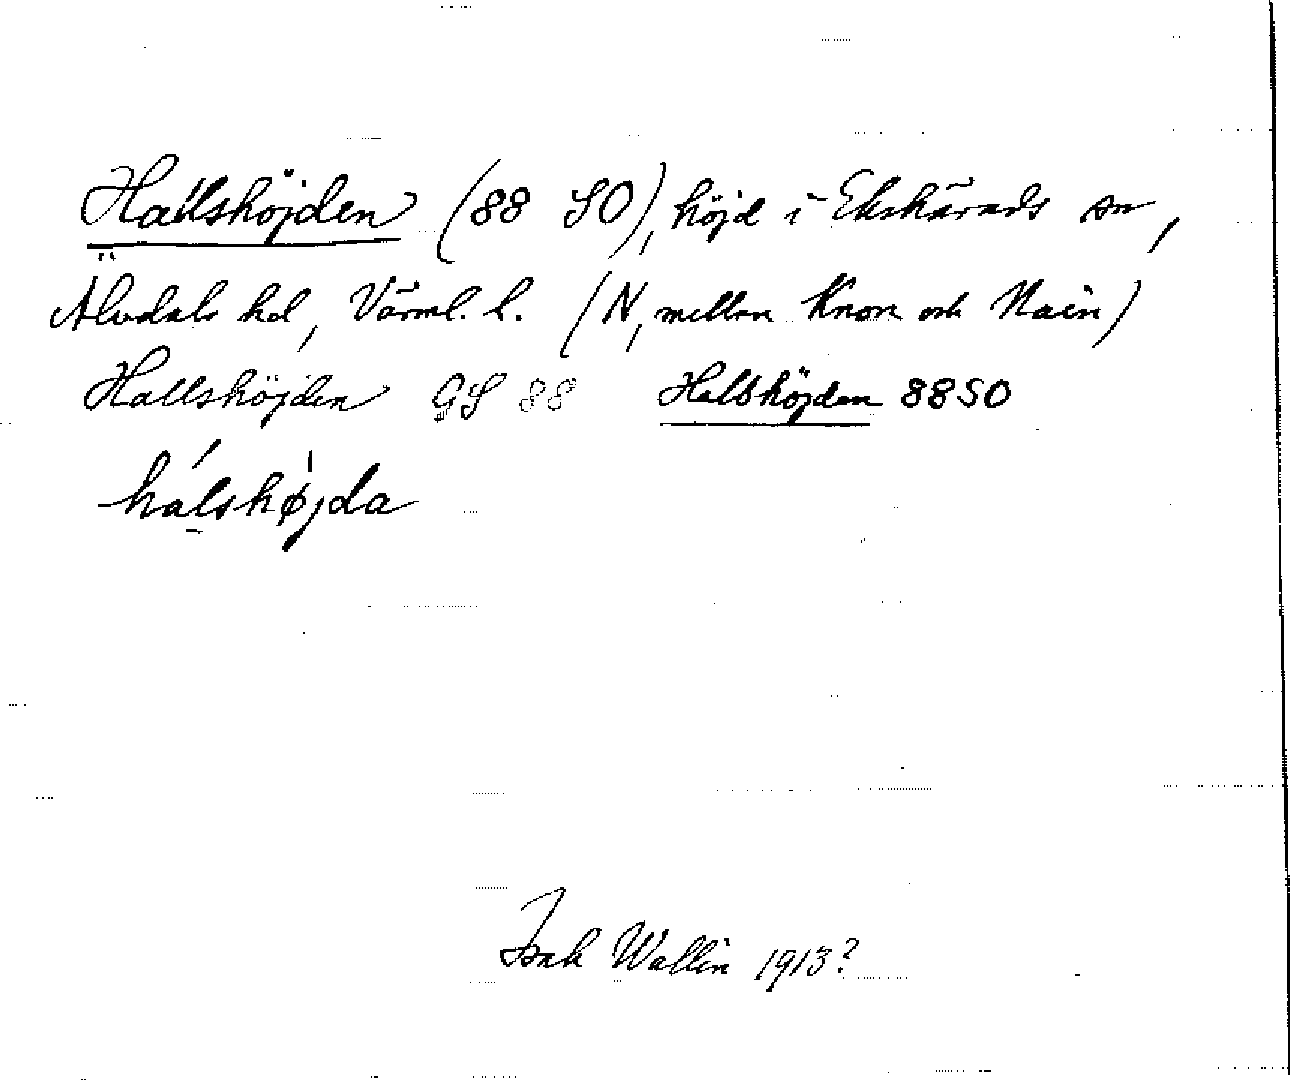 Hallshöjden (88 SO), höjd i Ekshärads sn,
Älvdals hd, Värml. l. (N, mellan Knon och Nain)
Hallshöjden GS 88 Halshöjden 88SO
hálshø̍jda
Isak Wallin 1913?